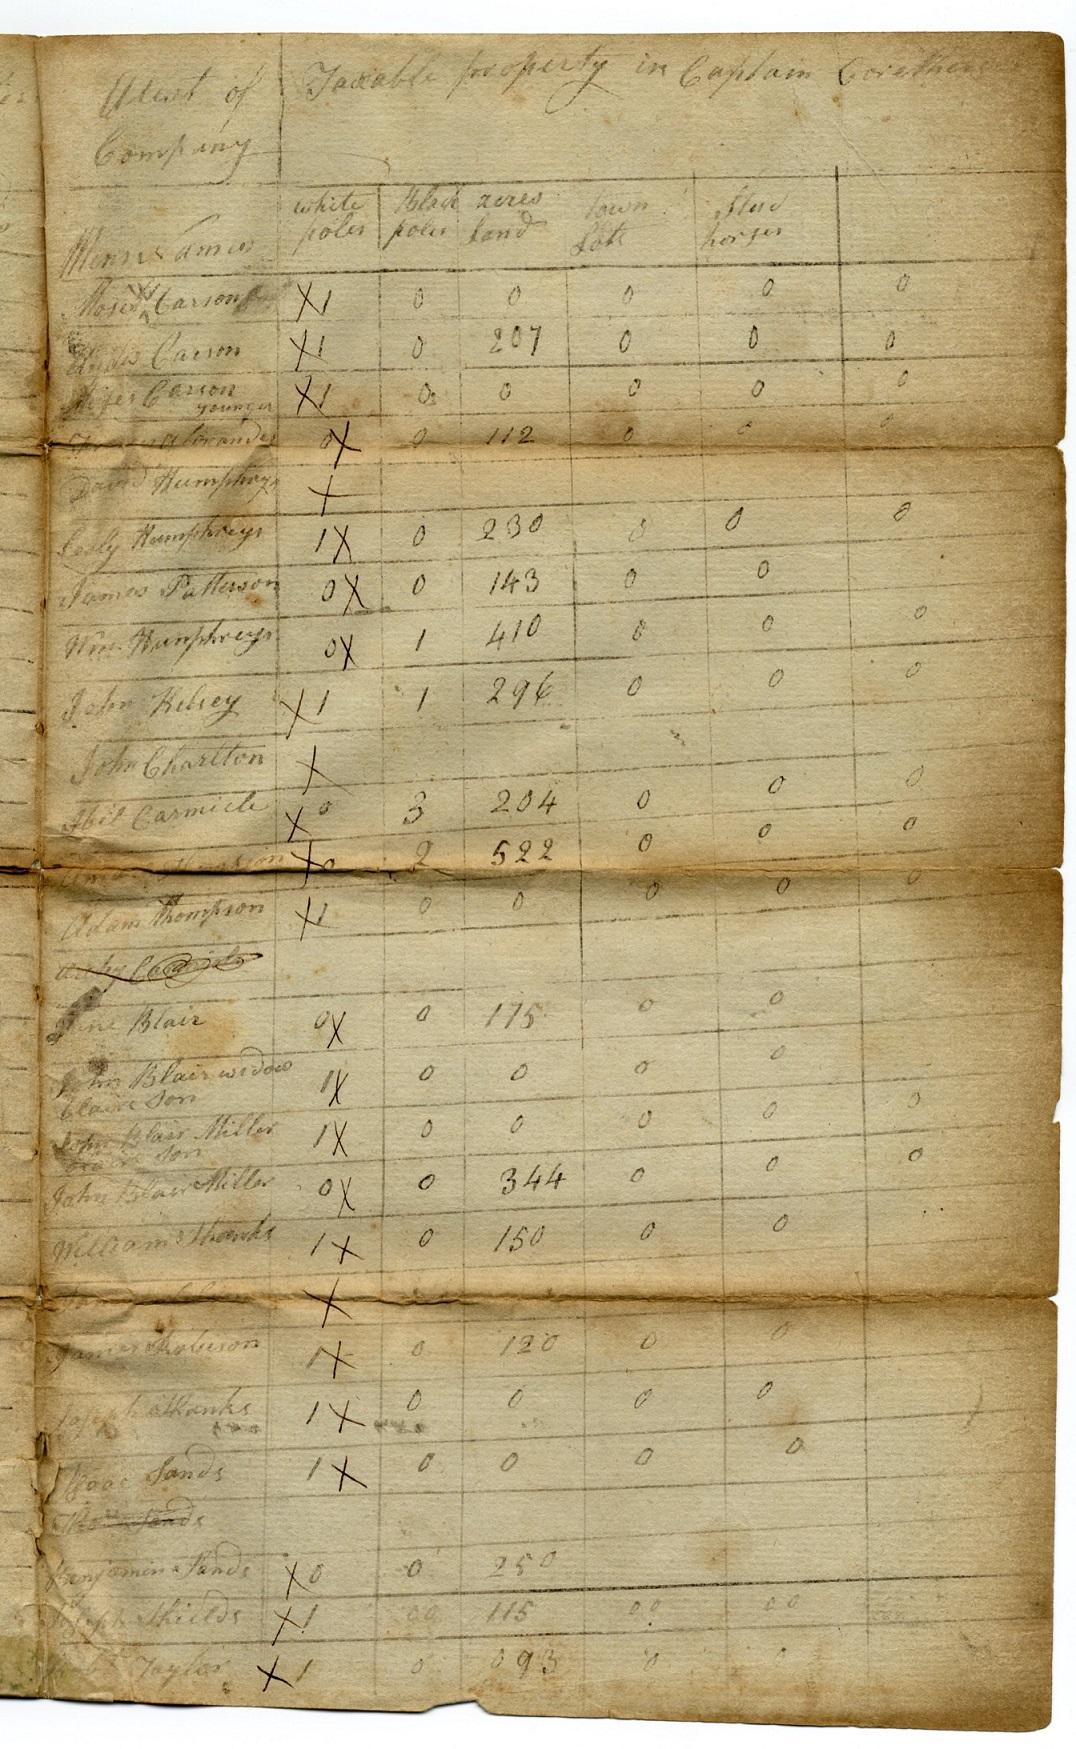 A List of Taxable property in Captain
Company
Mens names white poles Black poles acres land town Lots Stud horses
Moses Carson X1 0 0 0 0 0
Carson X1 0 207 0 0 0
Moses Carson younger X1 0 0 0 0 0
0X 0 112 0 0 0
David Humphreys X
Lesly Humphreys 1X 0 230 0 0 0
James Patterson 0X 0 143 0 0
Wm Humphreys 0X 1 410 0 0 0
John Kelsey X1 1 296 0 0 0
John Charlton X
Abil Carmicle X0 3 204 0 0 0
X0 2 522 0 0 0
Adam Thompson X1 0 0 0 0 0
Jane Blair 0X 0 175 0 0
John Blair widow 1X 0 0 0 0
Blairs Son
John Blair Miller 1X 0 0 0 0 0
Son
John Blair Miller 0X 0 344 0 0 0
William Shanks 1X 0 150 0 0
X
James Robeson 1X 0 120 0 0
Joseph Shanks 1X 0 0 0 0
Isaac Sands 1X 0 0 0 0
Sands
Benjamin Sands X0 0 250
Joseph Shields X1 00 115 00 00
Taylor X1 0 093 0 0